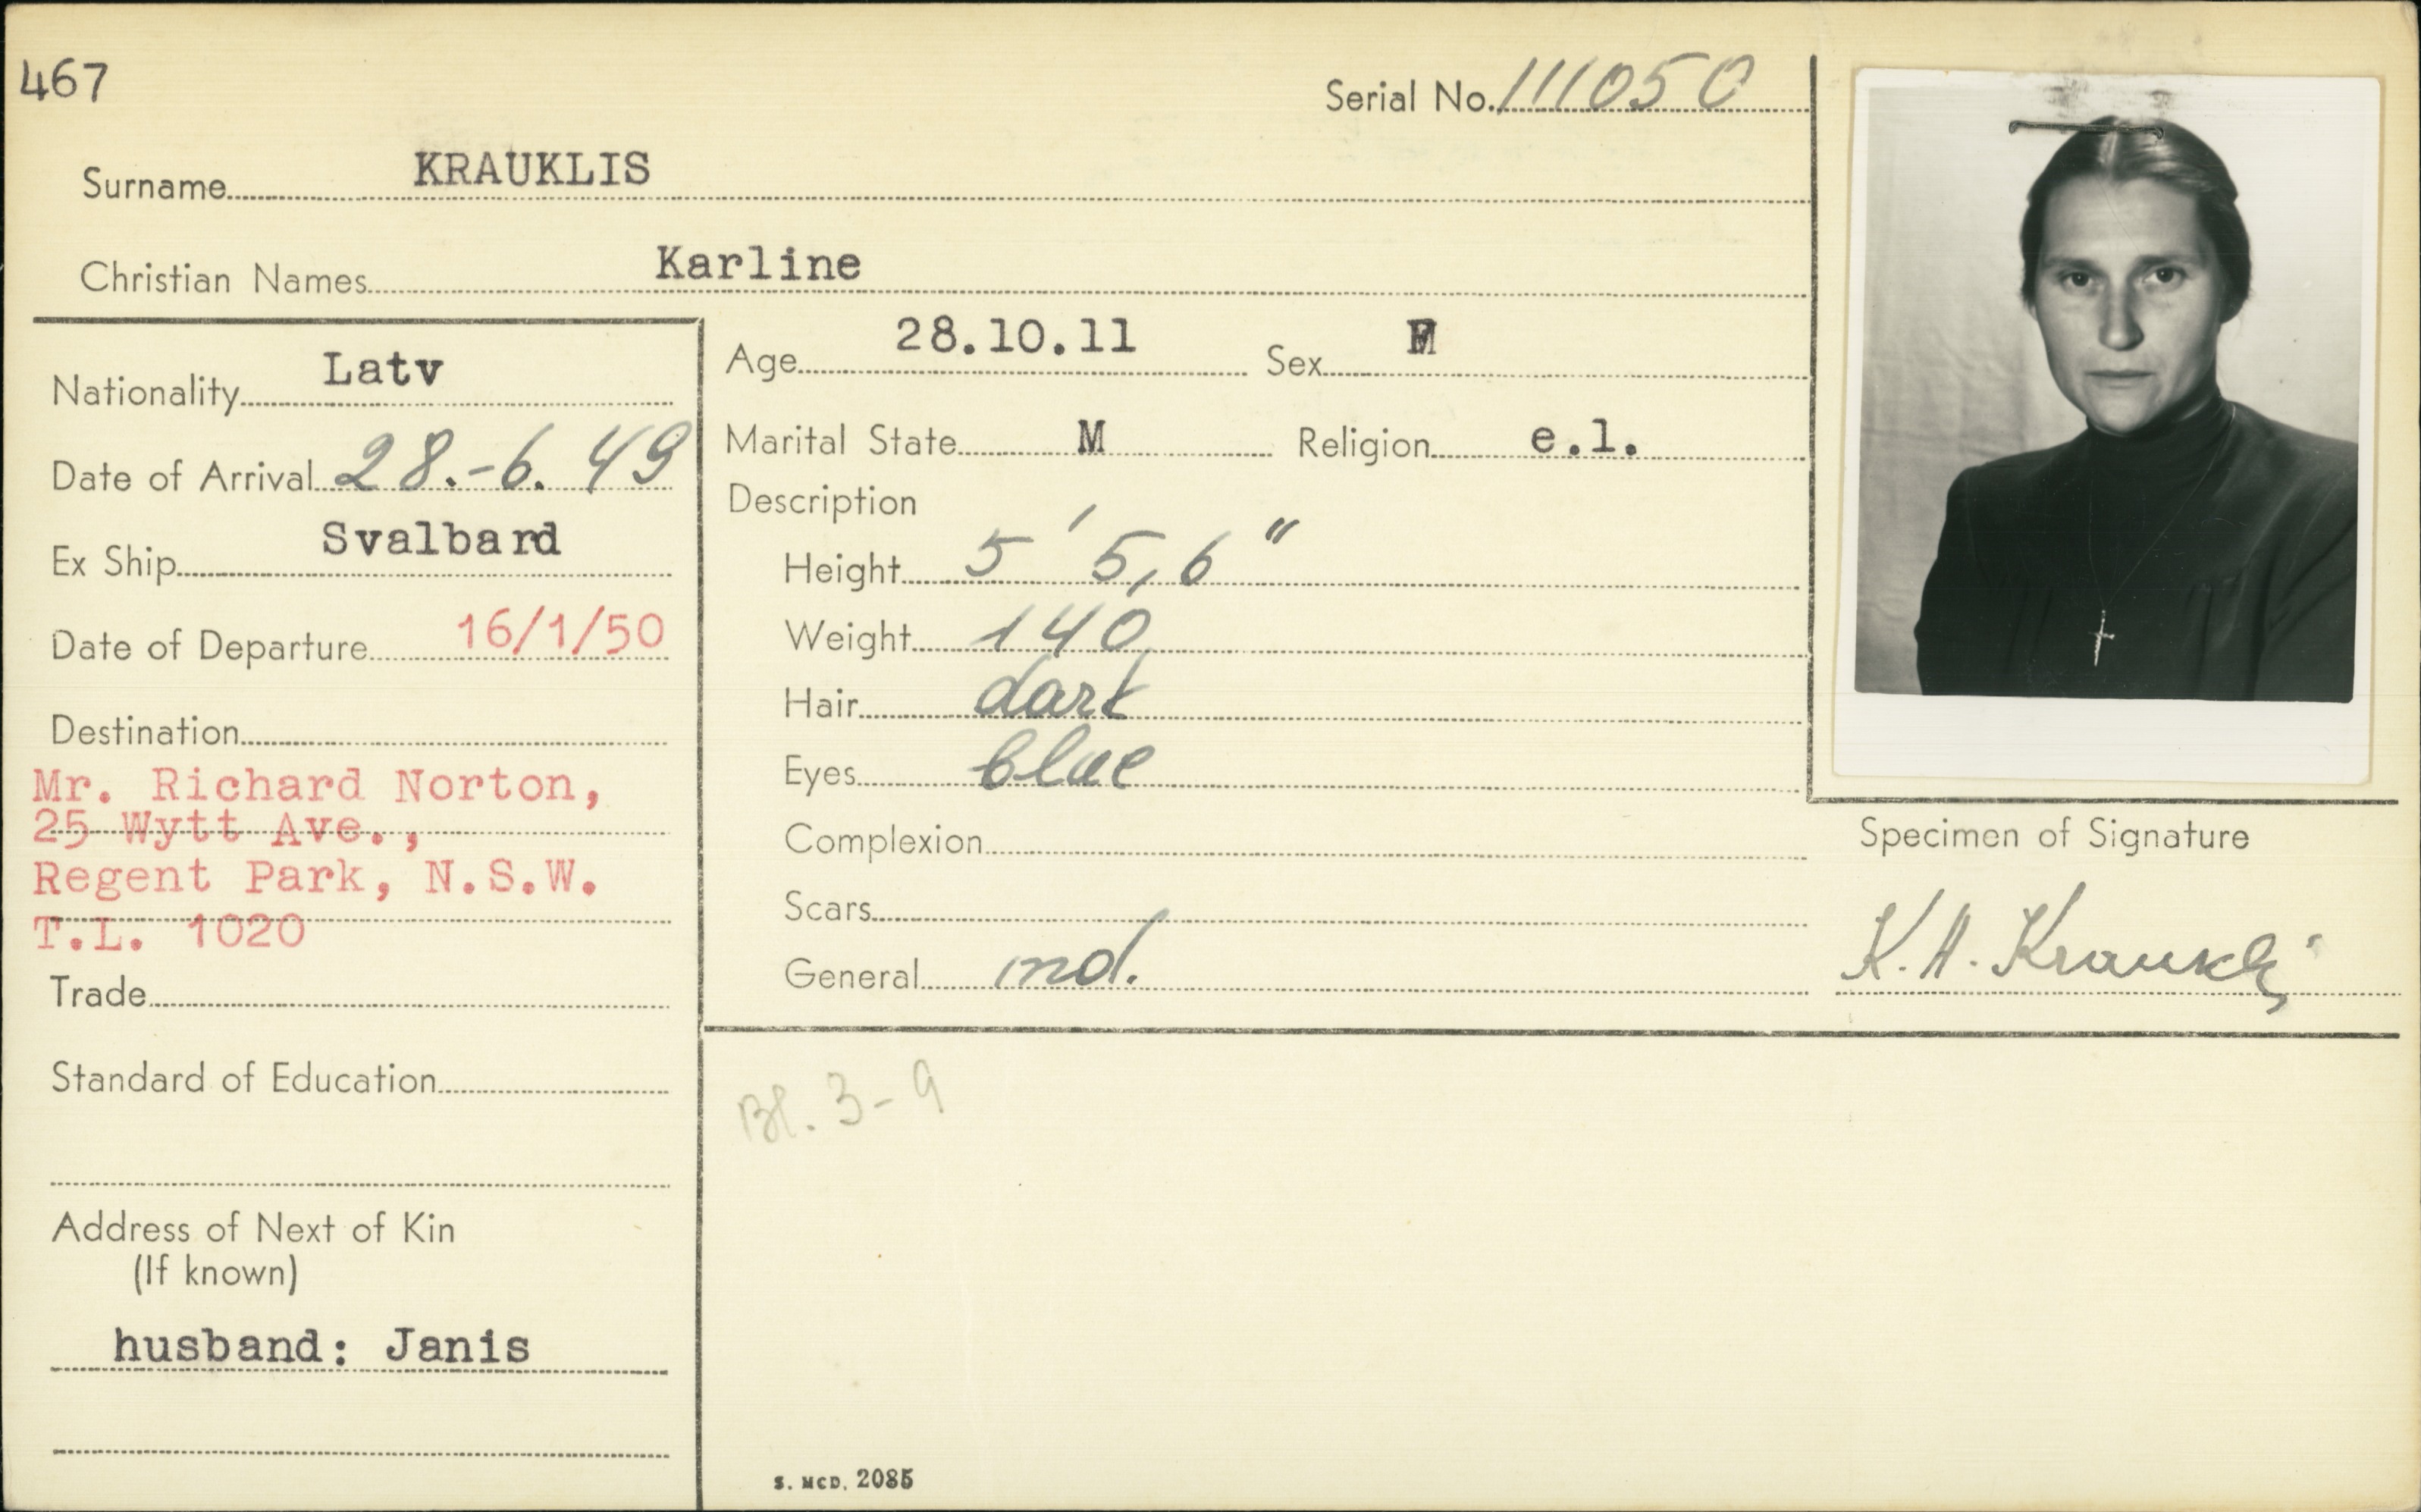 467
Serial No. 111050
Surname KRAUKLIS
Christian Names Karline
Nationality Latv
Date of Arrival 28.-6.49
Ex Ship Svalbard
Date of Departure 16/1/50
Destination
Mr. Richard Norton,
25 Wytt Ave.,
Regent Park, N.S.W.
T.L. 1020
Trade
Standard of Education
Address of Next of Kin
(If known)
husband: Janis
Age 28.10.11 Sex F
Marital State M Religion e.l.
Description
Height 5' 5,6"
Weight 140
Hair dark
Eyes blue
Complexion
Scars
General md.
Specimen of Signature
K.A. Krauklis
Bl. 3-9
S. McD. 2085